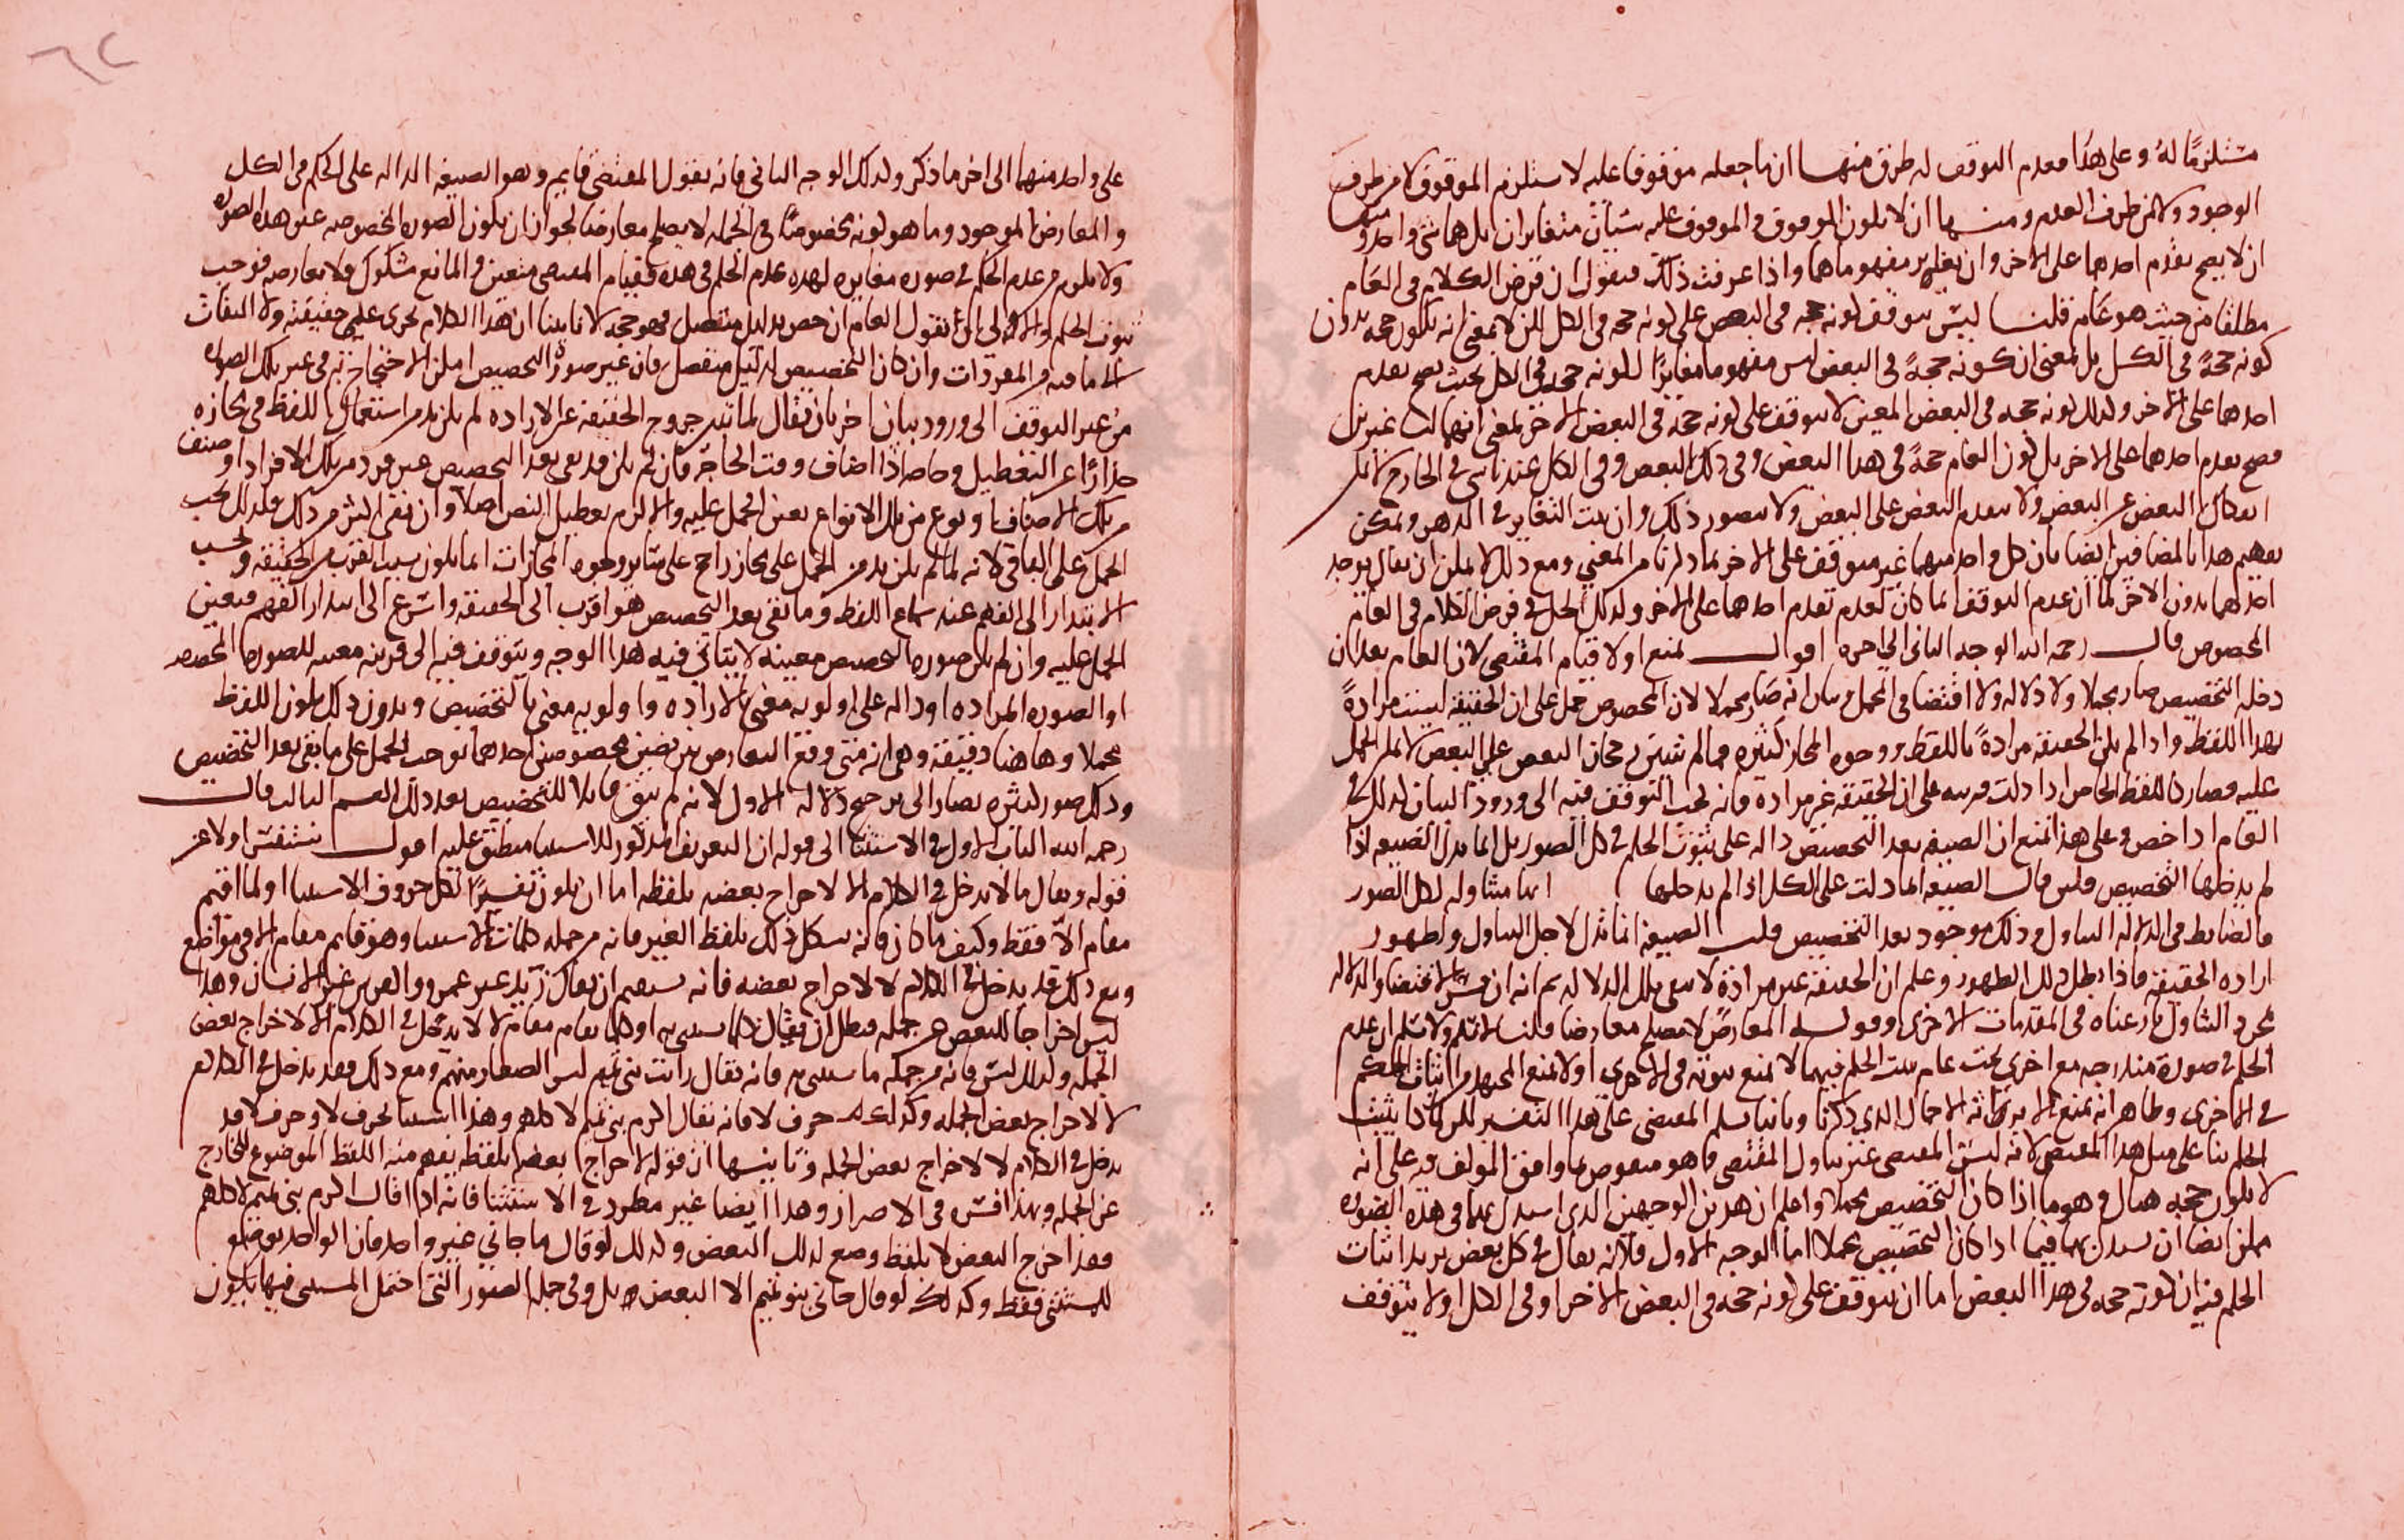 مستلزمًا له وعلى هذا فعدم التوقف له طرق منها ان ما جعله موقوفا عليه لا يستلزم الموقوف لا من طرف
الوجود ولا من طرف العدم ومنها ان لا يكون الموقوف والموقوف عليه شيئان متغايران بل هما شي واحد ومنها
ان لا يصح تقدم احدهما على الاخر وان تغاير مفهوماهما واذا عرفت ذلك فنقول ان فرض الكلام في العام
مطلقا من حيث هو عام قلنا ليس يتوقف كونه حجه في البعض على كونه حجه في الكل لكن لا بمعنى انه يكون حجه بدون
كونه حجةً في الكل بل بمعنى ان كونه حجةً في البعض ليس مفهوما مغايرًا لكونه حجه في الكل بحيث يصح تقدم
احدهما على الاخر وكذلك كونه حجه في البعض المعين لا يتوقف على كونه حجة في البعض الاخر بمعنى انهما ليسا غيرين
فصح تقدم احدهما على الاخر بل كون العام حجةً في هذا البعض وفي ذلك البعض وفي الكل عند ناس في الخارج لا يمكن
انفكاك البعض عن البعض ولا يتقدم البعض على البعض ولا يتصور ذلك وان ثبت التغاير في الذهن ويمكن
تفهيم هذا بالمضافين ايضا بان كل واحد منهما غير متوقف على الاخر بما ذكرنا من المعنى ومع ذلك لا يمكن ان يقال يوجد
احدهما بدون الاخر لما ان عدم التوقف انما كان لعدم تقدم احدهما على الاخر وكذلك الحال في فرض الكلام في العام
المخصوص قال رحمه الله الوجه الثاني الى اخره اقول نمنع اولا قيام المقتضي لان العام بعد ان
دخله التخصيص صار مجملا ولا دلاله ولا اقتضا في المجمل بيان انه صار مجملا لان المخصوص حمل على ان الحقيقة ليست مرادةً
بهذا اللفظ واذا لم يكن الحقيقة مرادةً باللفظ ووجوه المجاز كثيره فما لم يتبين رجحان البعض على البعض لا يمكن الحمل
عليه فصار كاللفظ الخاص اذا دلت قرينه على ان الحقيقه غير مرادة فانه يجب التوقف فيه الى ورود البيان كذلك في
العام اذا خص وعلى هذا نمنع ان الصيغه بعد التخصيص داله على ثبوت الحكم في كل الصور بل انما يدل الصيغه اذا
لم يدخلها التخصيص فلئن قال الصيغه انما دلت على الكل اذا لم يدخلها انما متناوله لكل الصور
فالضابط في الدلاله التناول وذلك موجود بعد التخصيص قلت الصيغه انما تدل لاجل التناول ولظهور
اراده الحقيقه فاذا بطل ذلك الظهور وعلم ان الحقيقة غير مرادة لا يبقى تلك الدلاله ثم انه ان فسر الاقتضا والدلاله
بمجرد التناول نازعناه في المقدمات الاخرى وقوله المعارض لا يصلح معارضا قلنا لا نسلم ولا نسلم ان عدم
الحكم في صورة مندرجه مع اخرى تحت عام يثبت الحكم فيهما لا يمنع ثبوته في الاخرى اولا يمنع المجتهد من اثبات الحكم
في الاخرى وظاهر انه يمنع الا يرى انه الاجمال الذي ذكرنا وثانيا سلم المقتضي على هذا التفسير لكن لماذا يثبت
الحكم بناء على مثل هذا المقتضي لانه ليس المقتضي غير تناول المقتضي فما هو منقوض بما وافق المولف فيه على انه
لا يكون حجه هناك وهو ما اذا كان التخصيص مجملا واعلم ان هذين الوجهين الذي استدل بهما في هذه الصوره
يمكن ايضا ان يستدل بهما فيما اذا كان التخصيص مجملا اما الوجه الاول فلانه يقال في كل بعض يريد اثبات
الحكم فيه ان كونه حجه في هذا البعض اما ان يتوقف على كونه حجه في البعض الاخر او في الكل او لا يتوقف
على واحد منهما الى اخر ما ذكر وكذلك الوجه الثاني فانه يقول المقتضي قايم وهو الصيغه الداله على الحكم في الكل
والمعارض الموجود وما هو كونه مخصوصًا في الجمله لا يصلح معارضا لجواز ان يكون الصوره المخصوصه غير هذه الصوره
ولا يلزم من عدم الحكم في صوره مغايره لهذه عدم الحكم في هذه فقيام المقتضي متعين والمانع مشكوك ولا يعارضه فوجب
ثبوت الحكم والاولى ان نقول العام ان خص بدليل منفصل فهو حجه لانا بينا ان هذا الكلام يجرى على حقيقته ولا التفات
الى ما فيه من المفردات وان كان التخصيص لدليل منفصل فان عين صورة التخصيص امكن الاحتجاج به في غير تلك الصوره
من غير التوقف الى ورود بيان اخر بان يقال لما تبين خروج الحقيقة عن الاراده لم يكن بد من استعمال اللفظ في مجازه
حذارًا عن التعطيل وخاصه اذا اضاف وقت الحاجة فان لم يكن قد بقي بعد التخصيص غير فرد من تلك الافراد او صنف
من تلك الاصناف او نوع من تلك الانواع تعين الحمل عليه والا لزم تعطيل النص اصلا وان بقى اكثر من ذلك فكذلك يجب
الحمل على الباقي لانه لما لم يكن بد من الحمل على مجاز راجح على ساير وجوه المجازات انما يكون بسبب القرب من الحقيقه وبحسب
الابتدار الى الفهم عند سماع اللفظ وما بقي بعد التخصيص هو اقرب الى الحقيقه واسرع الى ابتدار الفهم فتعين
الحمل عليه وان لم يكن صوره التخصيص معينه لا يتاتى فيه هذا الوجه ويتوقف فيه الى قرينه معينه للصوره المخصصه
او الصوره المراده او داله على اولويه معنى بالاراده او اولويه معنى بالتخصيص وبدون ذلك يكون اللفظ
مجملا وها هنا دقيقة وهي انه متى وقع التعارض بين تخصيصين احدهما يوجب الحمل على ما بقي بعد التخصيص
وذلك صور كثيره يصار الى ترجيح دلاله الاول لانه لم يبق قابلا للتخصيص بعد ذلك القسم الثالث قال
رحمه الله الباب الاول في الاستثنا الى قوله ان التعريف المذكور للاستثنا منطبق عليه اقول نستفسر اولا عن
قوله ويقال ما لا يدخل في الكلام الا لاخراج بعضه بلفظه اما ان يكون تفسيرًا لكل حروف الاستثنا او لما اقيم
مقام الّا فقط وكيف ما كان فانه يشكل ذلك بلفظ الغير فانه من جمله كلمات الاستثنا وهو قايم مقام الا في مواضع
ومع ذلك قد يدخل في الكلام لا لاخراج بعضه فانه يستقيم ان يقال زيد غير عمرو والفرس غير الانسان وهذا
ليس اخراجا للبعض عن جمله فبطل ان يقال كلما يستثنى به او كلما يقام مقام الا لا يدخل في الكلام الا لاخراج بعض
الجمله وكذلك ليس فانه من جملة ما يستثنى به فانه يقال رايت بني تميم ليس الصغار منهم ومع ذلك فقد يدخل في الكلام
لا لاخراج بعض الجمله وكذلك حرف لا فانه يقال اكرم بني تميم لا كلهم وهذا استثنا بحرف لا وحرف لا قد
يدخل في الكلام لا لاخراج بعض الجمله وثانيها ان قوله لاخراج بعضها بلفظه يفهم منه اللفظ الموضوع للخارج
عن الجمله وبهذا فسره في الاحتراز وهذا ايضا غير مطرد في الاستثنا فانه اذا قال اكرم بني تميم لا كلهم
فهذا اخرج البعض لا بلفظ وضع لذلك البعض وكذلك لو قال ما جاني غير واحد فان الواحد موضوع
للمستثنى فقط وكذلك لو قال جاني بنو تميم الا البعض بل وفي جل الصور التي احتمل المستثنى فيها يكون